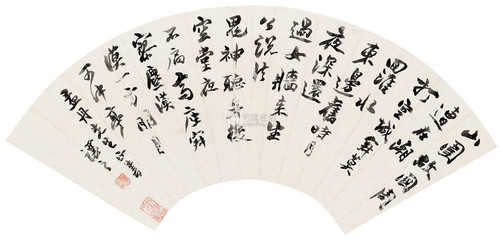 山圍故國周
遭在潮
打空城寂寞
回淮水
東邊舊時月
夜深還
過女牆來生
公說法
鬼神聽身後
空堂夜
不扃高座寂
寥塵漠
漠一方明月
可中庭